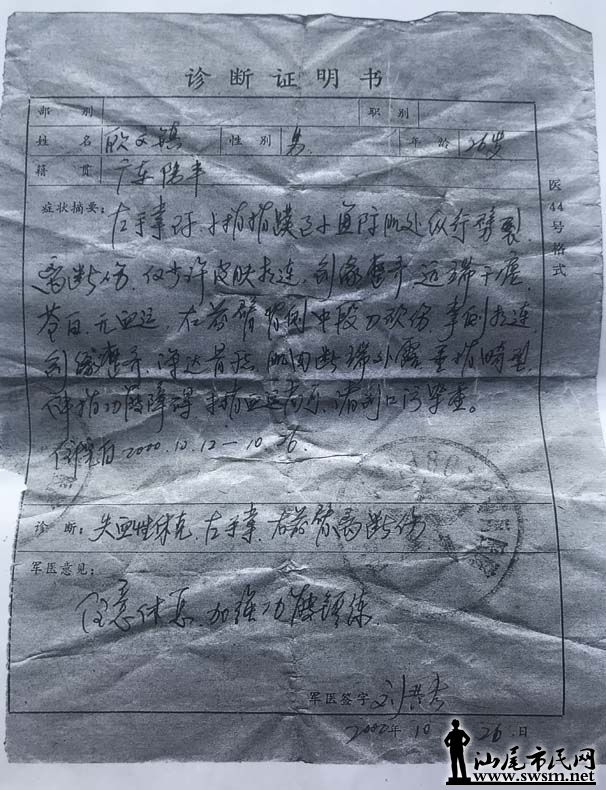 诊断证明书
部别 职别
姓名 欧文镇 性别 男 年龄 26岁
籍贯 广东陆丰
症状摘要： 左手掌环、小指指蹼至小鱼际肌处纵行劈裂
离断伤，仅少许皮肤相连，创缘整齐，远端干瘪
苍白，无血运，右前臂背侧中段刀砍伤，掌侧相连
创缘整齐，深达骨质，肌肉断端外露，垂指畸型
伸指功能障碍，手指血运尚好，诸创口污染重。
住院自2000.10.12—10.26.
诊断： 失血性休克，左手掌、右前臂离断伤
军医意见：
注意休息，加强功能锻练
军医签字 刘
2000年10 26日
医44号格式
汕尾市民网
www.swsm.net